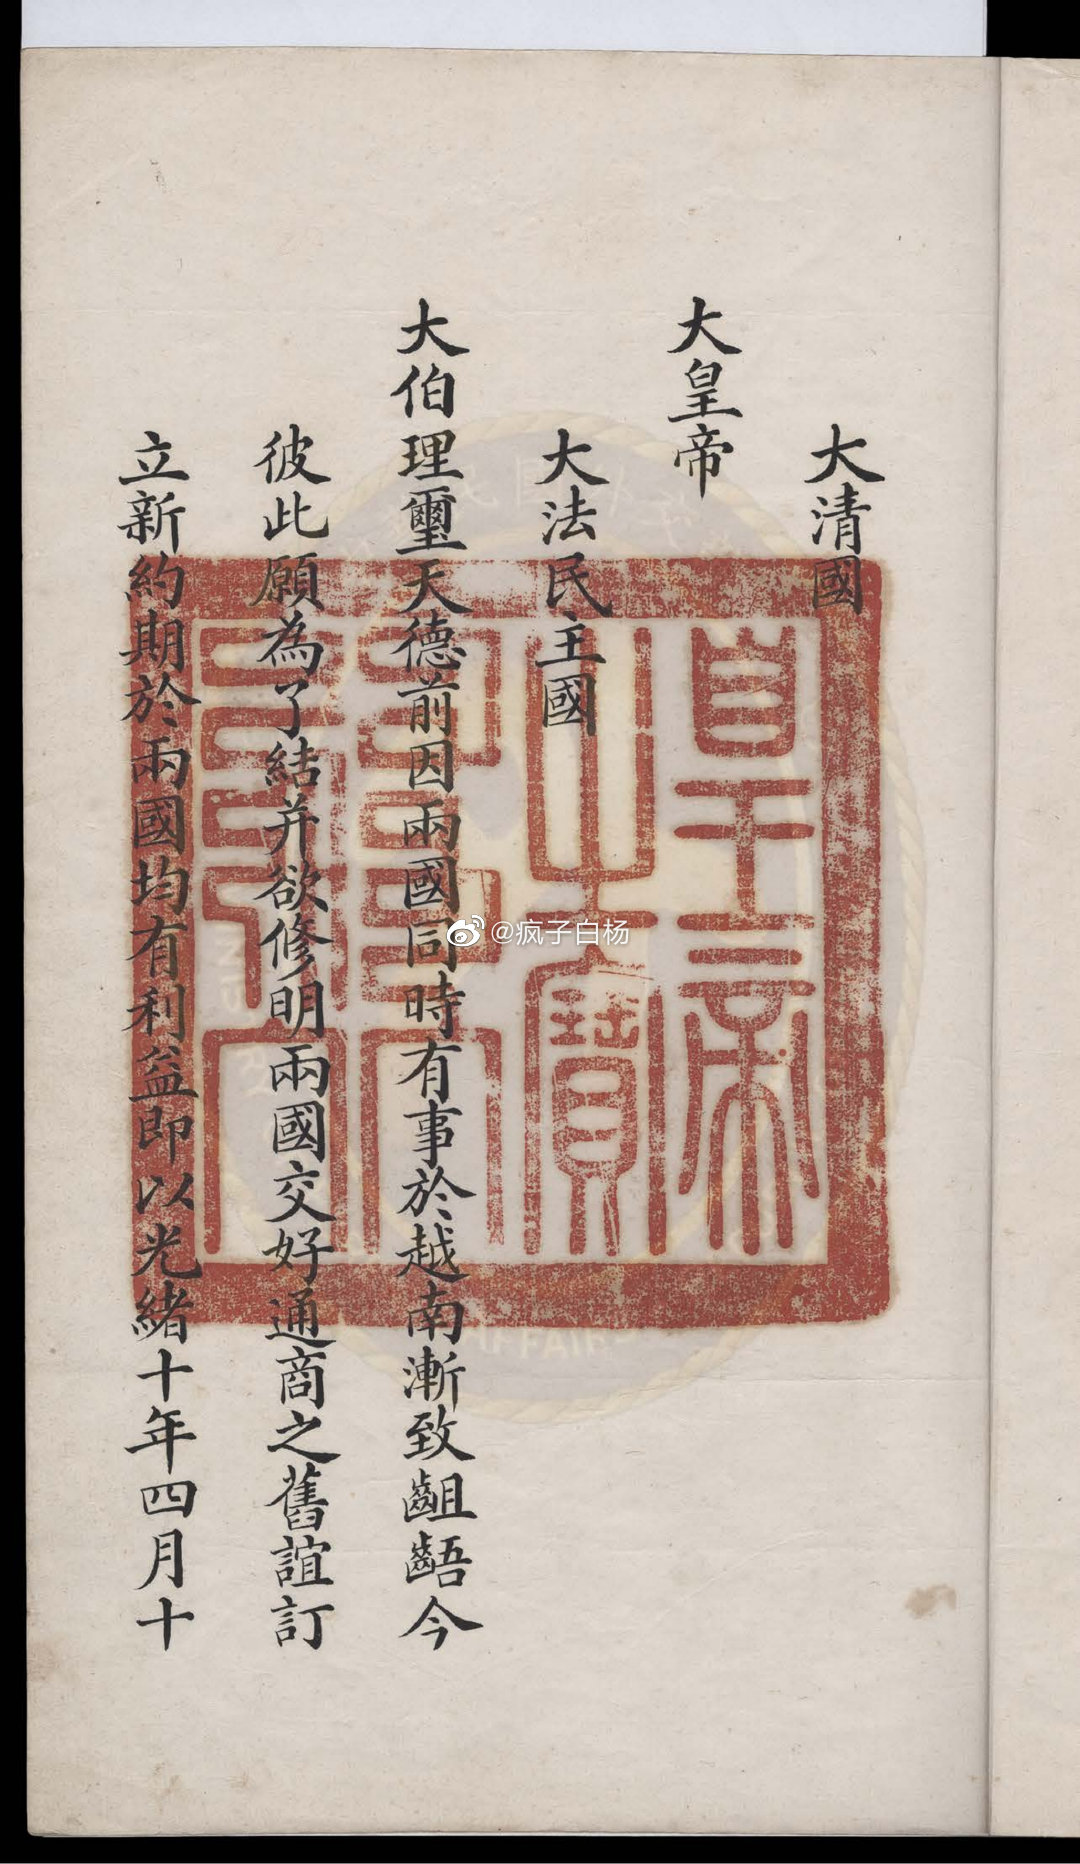 大清國
大皇帝
大法民主國
大伯理璽天德前因兩國同時有事於越南漸致齟齬今
彼此願為了結并欲修明兩國交好通商之舊誼訂
立新約期於兩國均有利益即以光緒十年四月十
皇帝之寶
@疯子白杨
AFFAIR